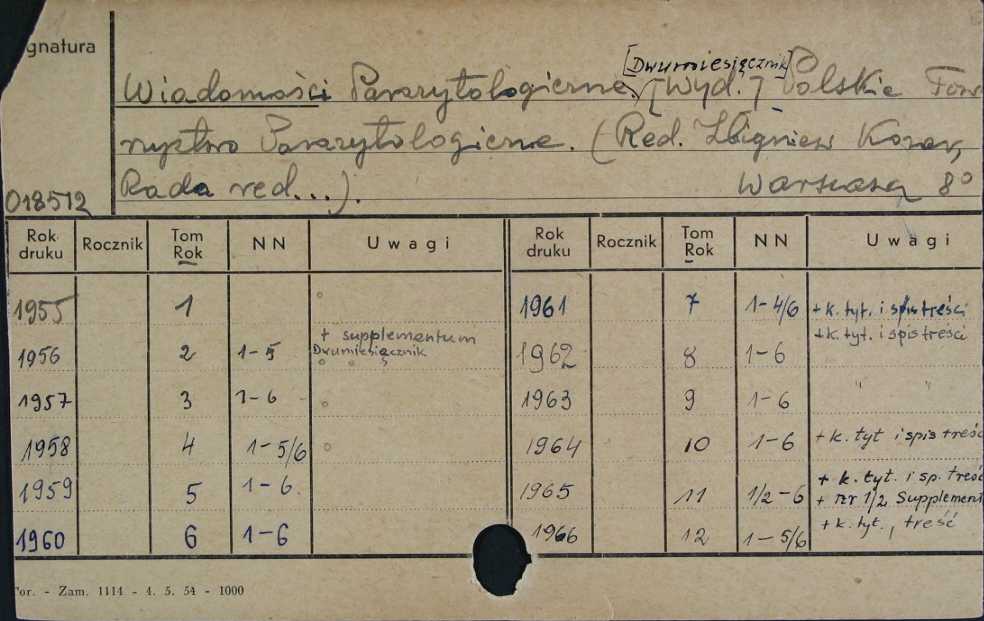 gnatura
[Dwumiesięcznik]
Wiadomości Parazytologiczne. [Wyd.] Polskie Towa-
rzystwo Parazytologiczne. (Red. Zbigniew Kozar,
Rada red...). Warszawa 8°
018512
Rok druku Rocznik Tom Rok NN Uwagi Rok druku Rocznik Tom Rok NN Uwagi
1955 1 1961 7 1-4/6 + k. tyt. i spis treści
1956 2 1-5 + supplementum Dwumiesięcznik 1962 8 1-6 + k. tyt. i spis treści
1957 3 1-6 1963 9 1-6 " "
1958 4 1-5/6 1964 10 1-6 + k. tyt i spis treśc
1959 5 1-6 1965 11 1/2-6 + k. tyt. i sp. treśc + nr 1/2 Supplement
1960 6 1-6 1966 12 1-5/6 + k. tyt., treść
or. - Zam. 1114 - 4. 5. 54 - 1000